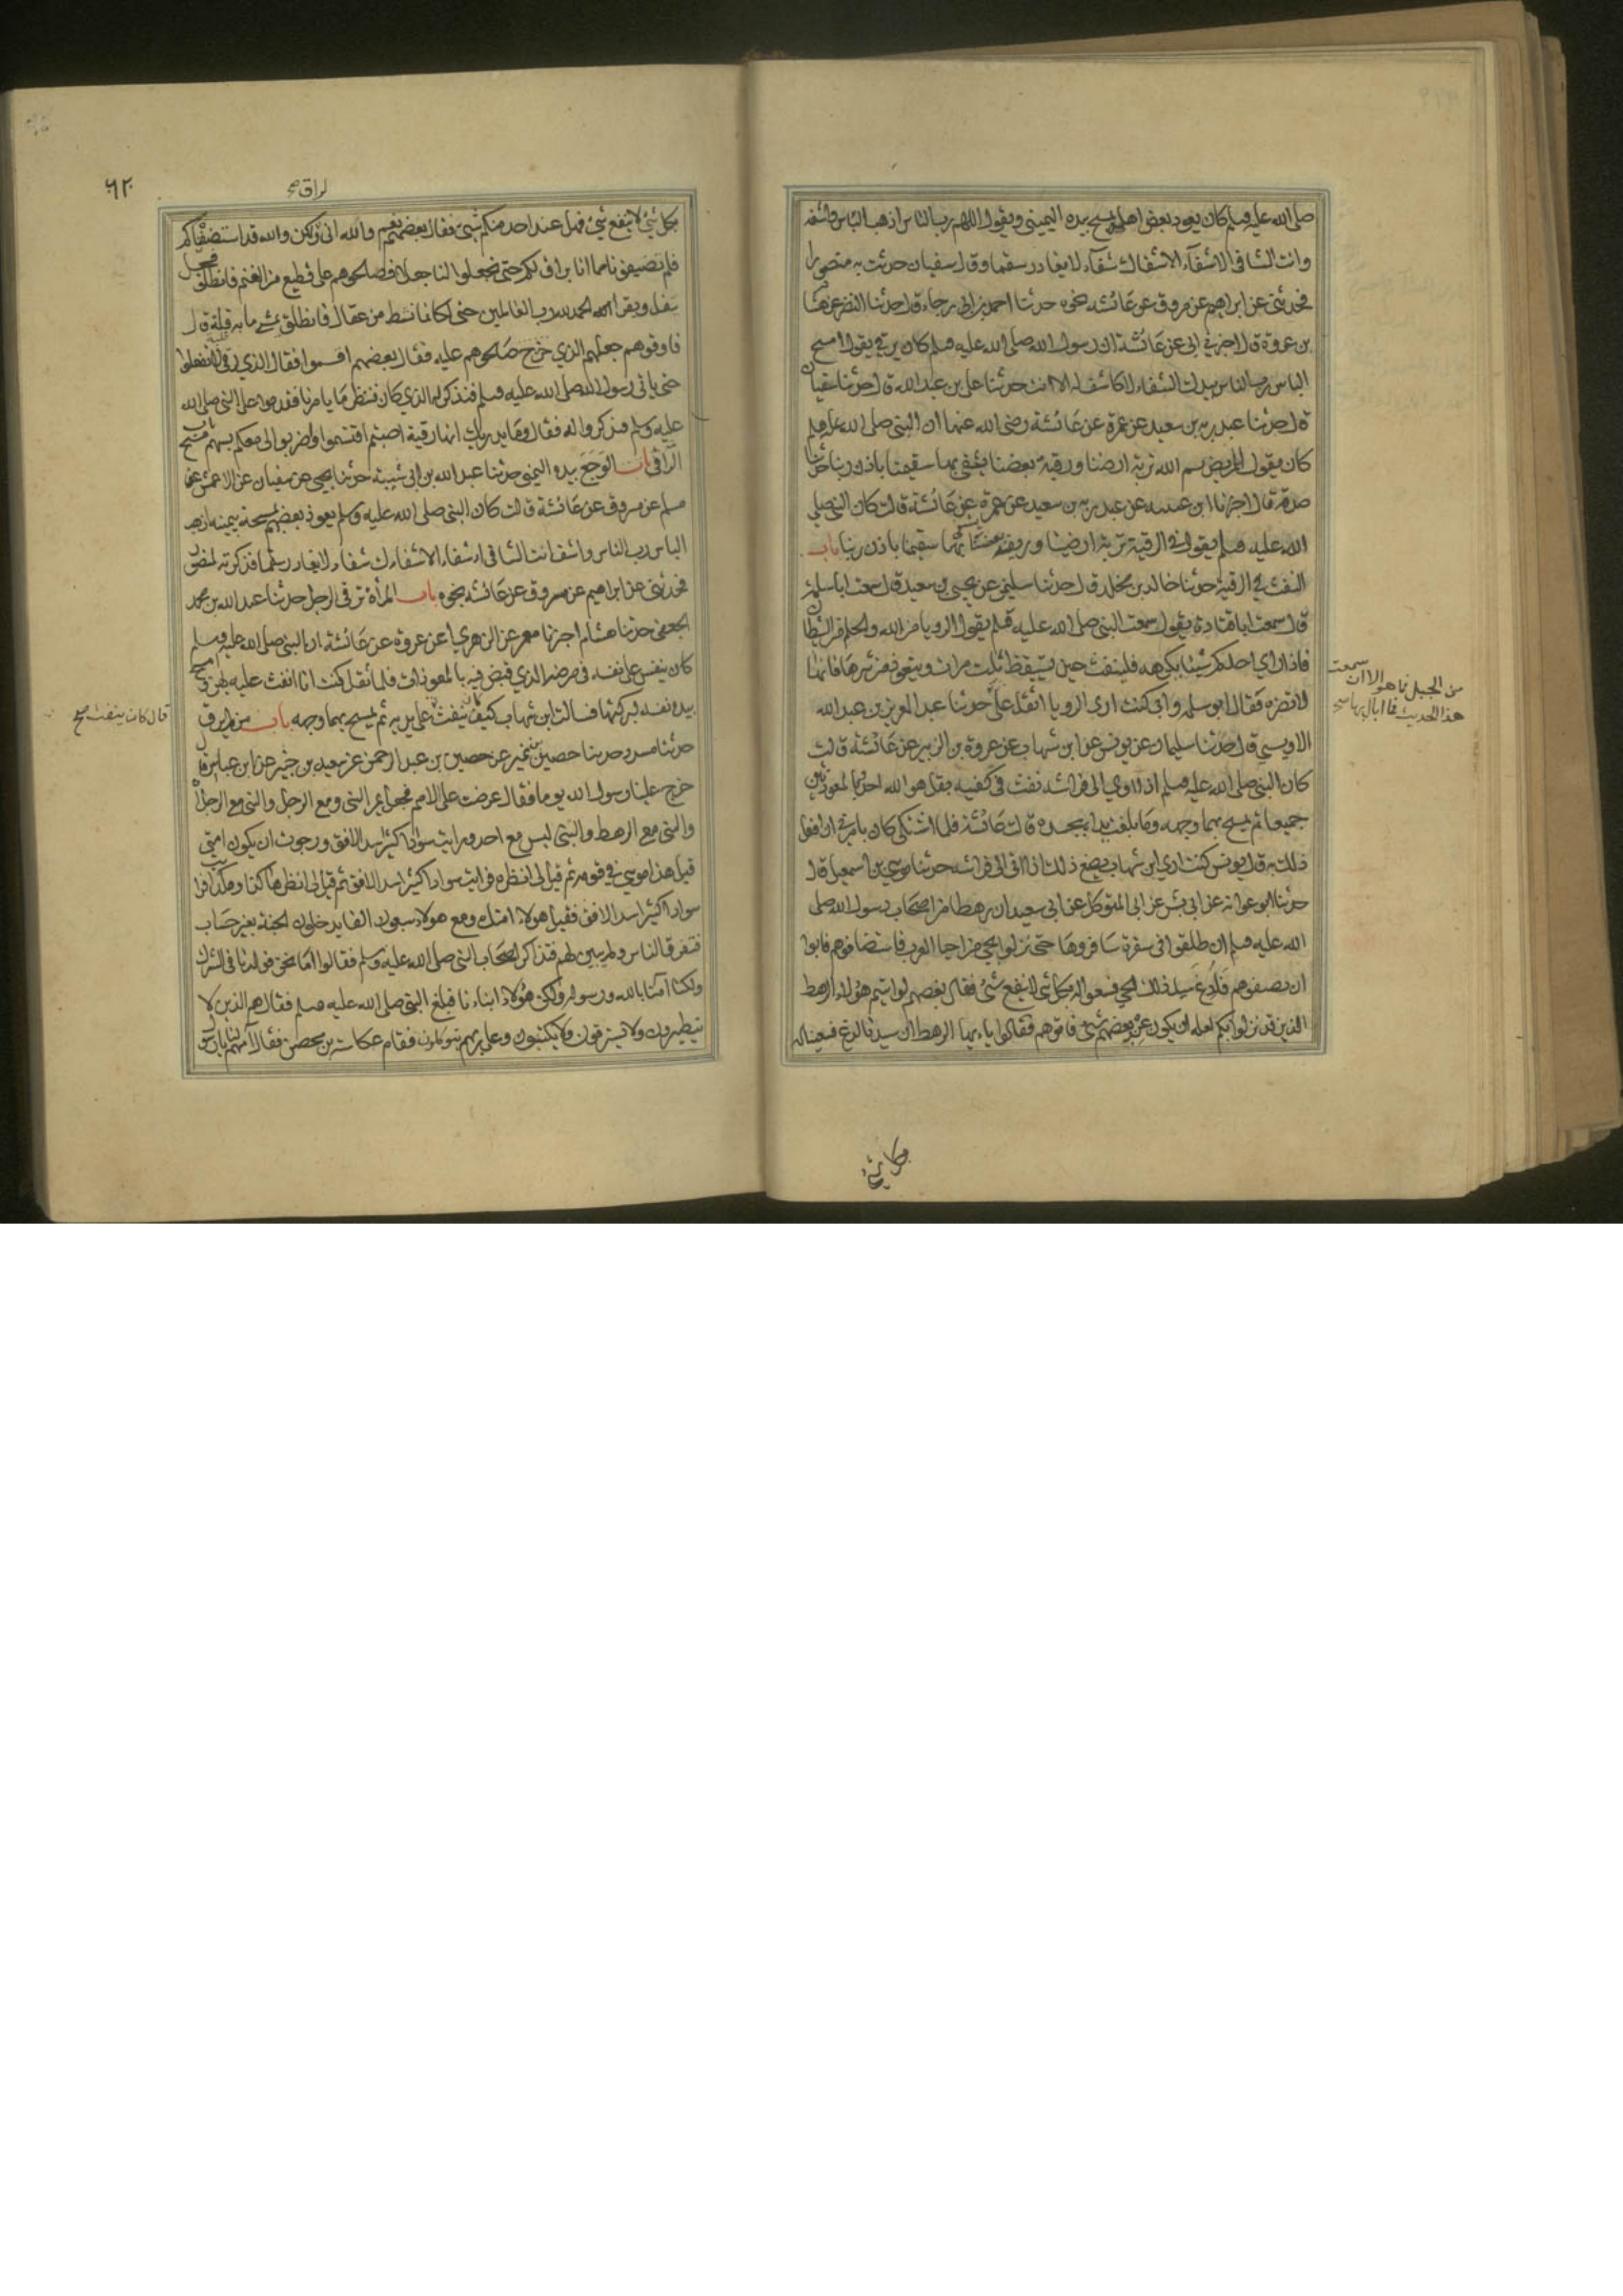 صلى الله عليه وسلم كان يعود بعض اهله يمسح بيده اليمينى ويقول اللهم رب الناس اذهب الباس واشفه
وانت الشافى لا شفآء الا شفاك شفآء لا يغادر سقما وقال سفيان حدثت به منصورا
فحدثنى عن ابراهيم عن مسروق عن عائشه نحوه حدثنا احمد بن ابى رجاء قال حدثنا النضر عن هشام
بن عروة قال اخبرنى ابى عن عائشة ان رسول الله صلى الله عليه وسلم كان يرقى يقول امسح
الباس رب الناس بيدك الشفاء لا كاشف له الا انت حدثنا على بن عبد الله قال حدثنا سفيان
قال حدثنا عبد ربه بن سعيد عن عمرة عن عائشة رضى الله عنها ان النبى صلى الله عليه وسلم
كان يقول للمريض بسم الله تربة ارضنا وريقة بعضنا يشفى بها سقيمنا باذن ربنا حدثنا
صدقة قال اخبرنا ابن عيينه عن عبد ربه بن سعيد عن عمرة عن عائشة قالت كان النبى صلى
الله عليه وسلم يقول فى الرقية تربة ارضنا وريقة بعضنا سقيمنا باذن ربنا باب
النفث فى الرقية حدثنا خالد بن مخلد قال حدثنا سليمن عن يحيى بن سعيد قال سمعت ابا سلمة
قال سمعت ابا قتادة يقول سمعت النبى صلى الله عليه وسلم يقول الرويا من الله والحلم من الشيطان
فاذا راى احدكم شيئا يكرهه فلينفث حين يستيقظ ثلث مرات ويتعوذ من شرها فانها
لا تضره فقال ابو سلمه وانى كنت ارى الرويا اثقل على حدثنا عبد العزيز بن عبد الله
الاويسى قال حدثنا سليمان عن يونس عن ابن شهاب عن عروة بن الزبير عن عائشة قالت
كان النبى صلى الله عليه وسلم اذا اوى الى فراشه نفث فى كفيه بقل هو الله احد وبالمعوذتين
جميعا ثم يمسح بهما وجهه وما بلغت يداه من جسده قالت عائشة فلما اشتكى كان يامرنى ان افعل
ذلك به قال يونس كنت ارى ابن شهاب يصنع ذلك اذا اتى الى فراشه حدثنا موسى بن اسمعيل قال
حدثنا ابو عوانه عن ابى بشر عن ابى المتوكل عن ابى سعيد ان رهطا من اصحاب رسول الله صلى
الله عليه وسلم انطلقوا فى سفرة سافروها حتى نزلوا بحى من احيا العرب فاستضافوهم فابوا
ان يضيفوهم فلدغ سيد ذلك الحى فسعوا له بكل شى لا ينفع شئ فقال بعضهم لو اتيتم هولاء الرهط
الذين قد نزلوا بكم لعله ان يكون عند بعضهم شئ فاتوهم فقالوا يا ايها الرهط ان سيدنا لدغ فسعينا له
من الجبل فما هو الا ان سمعت
هذا الحديث فما اباليها صح
بكل شئ
٦٢٠
لراق صح
بكل شئ لا ينفع شئ فهل عند احد منكم شئ فقال بعضهم نعم والله انى لراق ولكن والله قد استضفناكم
فلم تضيفونا فما انا براق لكم حتى تجعلوا لنا جعلا فصالحوهم على قطيع من الغنم فانطلق فجعل
يتفل ويقرا الحمد لله رب العالمين حتى لكانما نشط من عقال فانطلق يمشى ما به قلبة قال
فاوفوهم جعلهم الذي صالحوهم عليه فقال بعضهم اقسموا فقال الذي رقى لا تفعلوا
حتى ياتى رسول الله صلى الله عليه وسلم فنذكر له الذي كان فننظر ما يامرنا فقدموا على النبى صلى الله
عليه وسلم فذكروا له فقال وما يدريك انها رقية اصبتم اقتسموا واضربوا لى معكم بسهم باب مسح
الراقى الوجع بيده اليمنى حدثنا عبد الله بن ابى شيبة حدثنا يحيى عن سفيان عن الاعمش عن
مسلم عن مسروق عن عائشة قالت كان النبى صلى الله عليه وسلم يعوذ بعضهم يمسحه بيمينه اذهب
الباس رب الناس واشف انت الشافى لا شفاء الا شفاءك شفاء لا يغادر سقما فذكرته لمنصور
فحدثنى عن ابراهيم عن مسروق عن عائشه بنحوه باب المرأة ترقى الرجل حدثنا عبد الله بن محمد
الجعفى حدثنا هشام اخبرنا معمر عن الزهري عن عروة عن عائشة ان النبى صلى الله عليه وسلم
كان ينفث على نفسه فى مرضه الذي قبض فيه بالمعوذات فلما ثقل كنت انا انفث عليه بهن وامسح
بيده نفسه لبركتها فسالت ابن شهاب كيف كان ينفث على يديه ثم يمسح بهما وجهه باب من لم يرق
حدثنا مسدد حدثنا حصين بن نمير عن حصين بن عبد الرحمن عن سعيد بن جبير عن ابن عباس قال
خرج علينا رسول الله يوما فقال عرضت على الامم فجعل يمر النبى ومع الرجل والنبى مع الرجلان
والنبى مع الرهط والنبى ليس مع احد ورايت سوادا كثيرا سد الافق ورجوت ان يكون امتى
قيل هذا موسى فى قومه ثم قيل لى انظر فرايت سوادا كثيرا سد الافق ثم قيل لى انظر هكذا وهكذا فرايت
سوادا كثيرا سد الافق فقيل هولاء امتك ومع هولاء سبعون الفا يدخلون الجنة بغير حساب
فتفرق الناس ولم يبين لهم فتذاكر اصحاب النبى صلى الله عليه وسلم فقالوا اما نحن فولدنا فى الشرك
ولكنا آمنا بالله ورسوله ولكن هؤلاء ابناءنا فبلغ النبى صلى الله عليه وسلم فقال هم الذين لا
يتطيرون ولا يسترقون ولا يكتوون وعلى ربهم يتوكلون فقام عكاشة بن محصن فقال امنهم انا يا رسول
قال كان ينفث صح